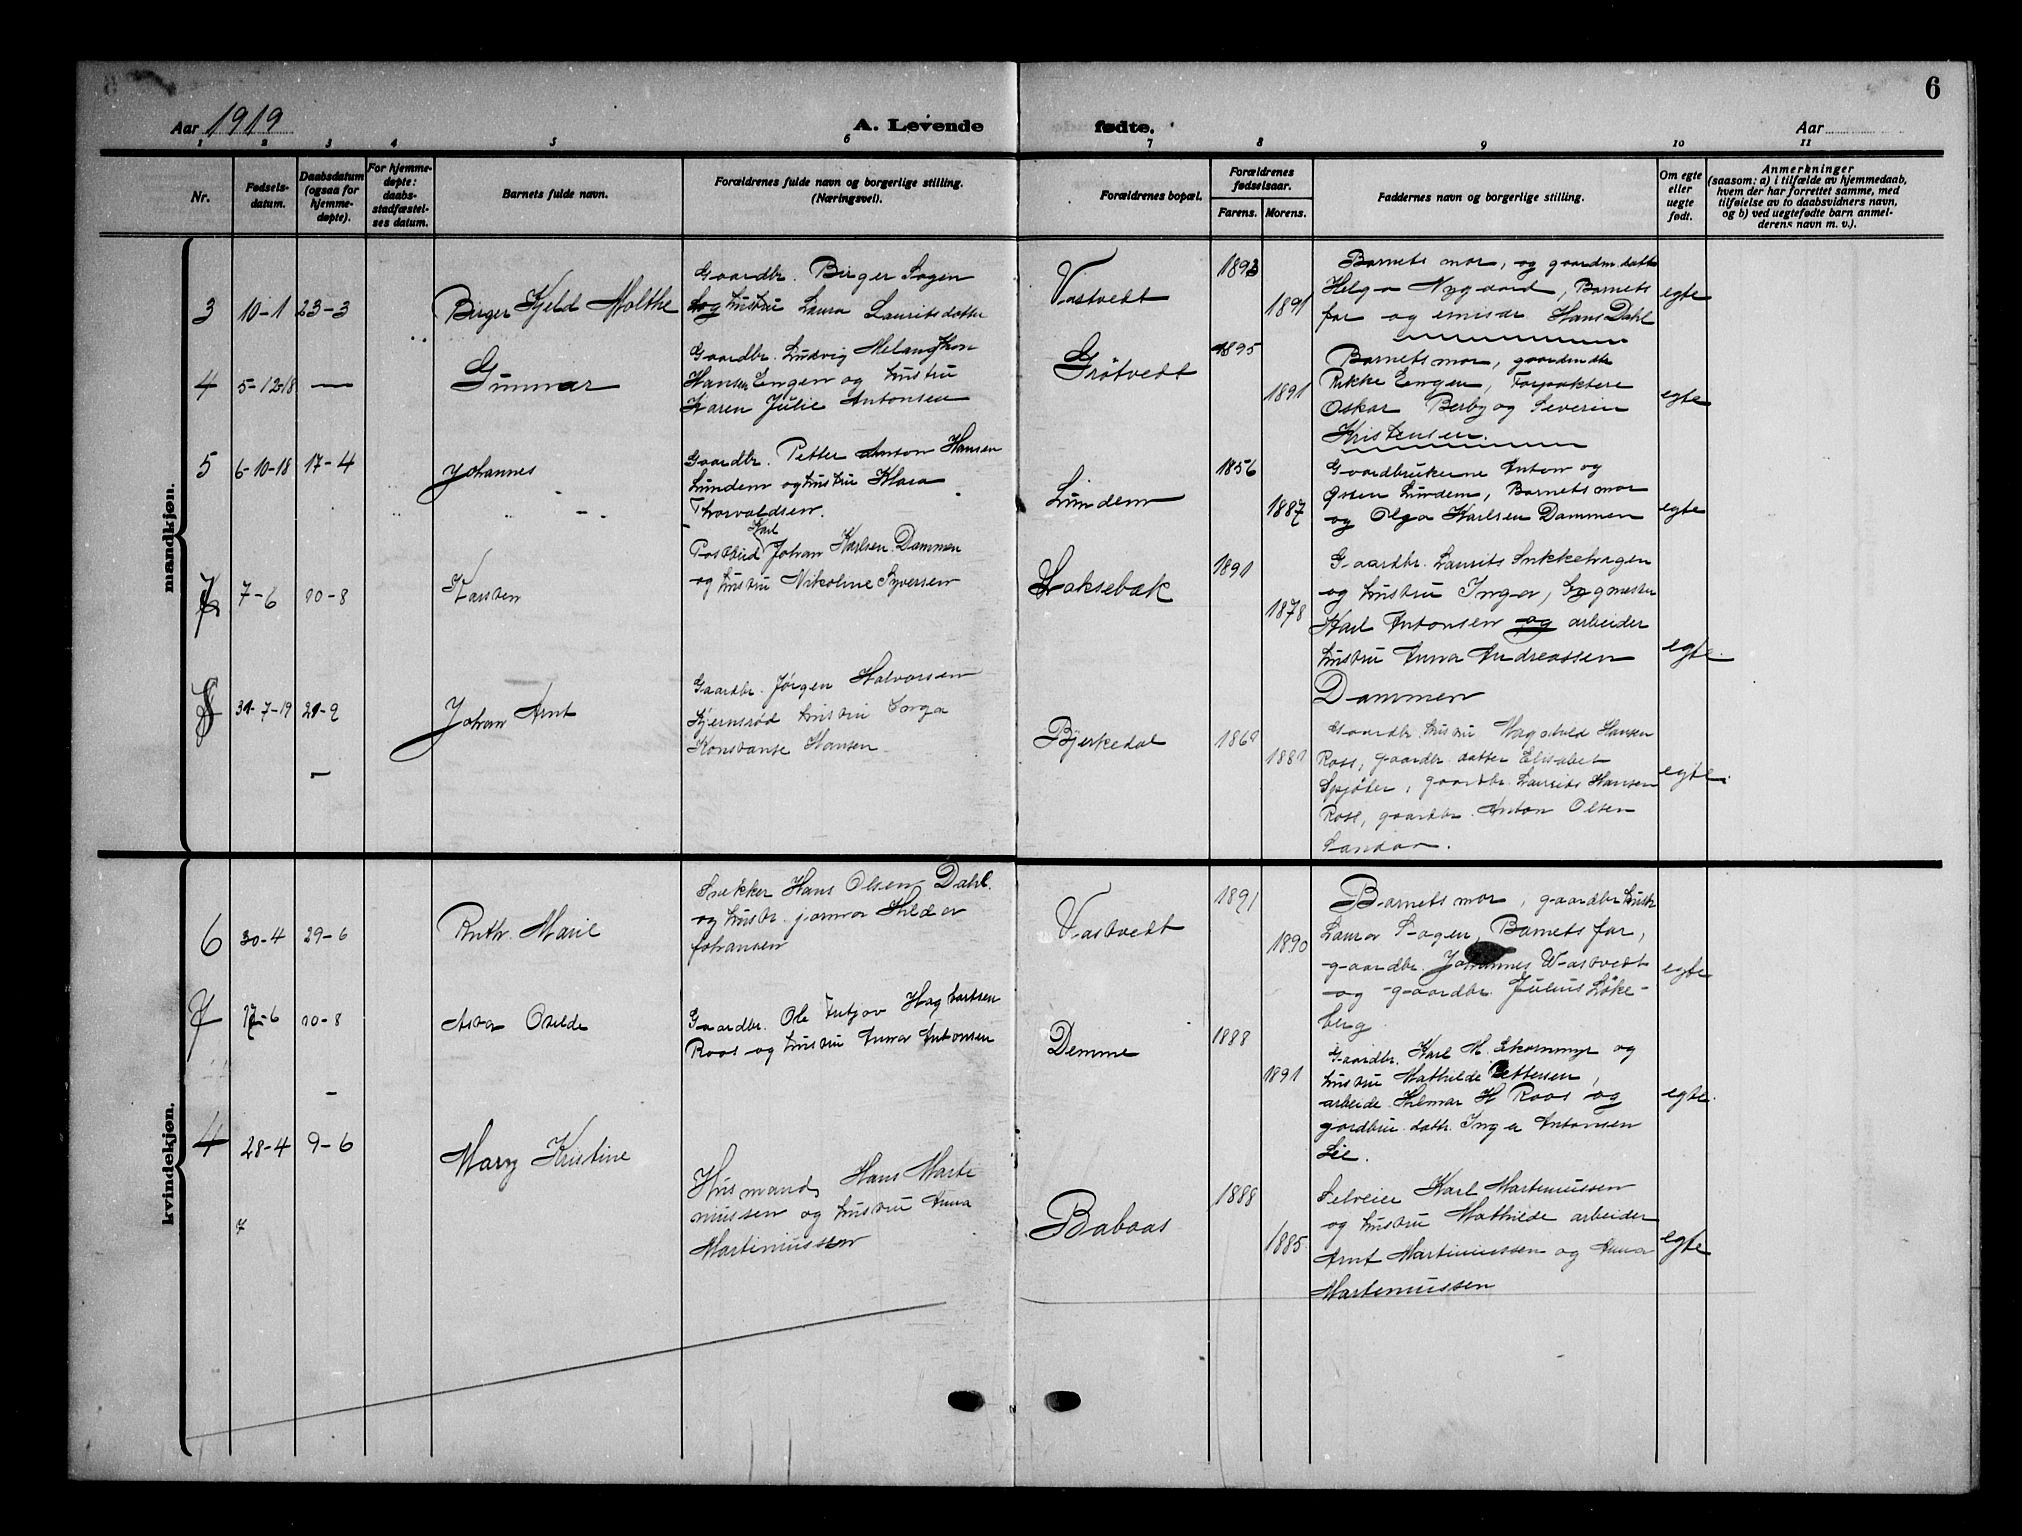 6
Aar 1919
A. Levende fødte.
Aar
1 2 3 4 5 6 7 8 9 10 11
Nr.
Fødsels-
datum.
Daabsdatum
(ogsaa for
hjemme-
døpte).
For hjemme-
døpte:
daabs-
stadfæstel-
ses datum.
Barnets fulde navn.
Forældrenes fulde navn og borgerlige stilling.
(Næringsvei).
Forældrenes bopæl.
Forældrenes
fødselsaar.
Farens. Morens.
Faddernes navn og borgerlige stilling.
Om egte
eller
uegte
født.
Anmerkninger
(saasom: a) i tilfælde av hjemmedaab,
hvem der har forrettet samme, med
tilføielse av to daabsvidners navn,
og b) ved uegtefødte barn anmel-
derens navn m. v.).
mandkjøn.
3 10-1 23-3
Birger Kjeld Molthe
Gaardbr. Birger Sogen
og hustru Laura Lauritsdatter
Vastvedt
1893
1891
Barnets mor, og gaardm. datt
Helga Nygaard, Barnets
far og emisær Hans Dahl
egte
4 5-12-18 —
Gunnar
Gaardbr. Ludvig Melangthon
Hansen Engen og hustru
Karen Julie Antonsen
Grötvedt
1895
1891
Barnets mor, gaardm dtr
Rikke Engen, Forpaktere
Oskar Berby og Severin
Kristensen.
egte
5 6-10-18 17-4
Johannes
Gaardbr. Petter Anton Hansen
Lundem og hustru Klara
Thorvaldsen.
Lundem
1856
1887
Gaardbrukerne Anton og
Lundem, Barnets mor
og Olga Karlsen Dammen
egte
7-6 10-8
Karsten
Karl
Postbud Johan Karlsen Dammen
og hustru Nikoline Syversen
Laksebæk
1891
1878
Gaardbr. Laurits Snekkehagen
og hustru Inga,
Karl Antonsen og arbeider
hustru Anna Andreassen
Dammen
egte.
31-7-19 21-9
Johan Arnt
Gaardbr. Jørgen Halvorsen
Kjernsrød hustru Inga
Konstanse Hansen
—
Bjerkedal
1869
1881
Gaardbr. hustru Magnhild Hansen
Ross, gaardbr datter Elisabet
Spjøter, gaardbr. Laurits Hansen
Ross, gaardbr. Anton Olsen
Sandaa.
egte.
kvindekjøn.
6 30-4 29-6
Ruth Marie
Snekker Hans Olsen Dahl.
og hustr. Hilda
Johansen
Vastvedt
1891
1890
Barnets mor, gaardbr hustr
Laura Sogen, Barnets far,
gaardbr. Johannes Wastvedt
og gaardbr. Julius Løke-
berg
egte
7 17-6 10-8
Asta Oselde
Gaardbr. Ole Fritjov Hagbartsen
Roos og hustru Anna Antonsen
Demme
1888
1891
Gaardbr. Karl M. Ekornmyr og
hustru Mathilde Pettersen,
arbeide. Hilmar H Roos og
gardbru. datr. Inga Antonsen
Lie.
egte.
—
4 28-4 9-6
7
Mary Kristine
Husmand, Hans Marte
nussen og hustru Anna
Martinussen
Babaas
1888
1885
Selveier Karl Martinussen
og hustru Mathilde arbeider
Arnt Martinussen og Anna
Martinussen
egte